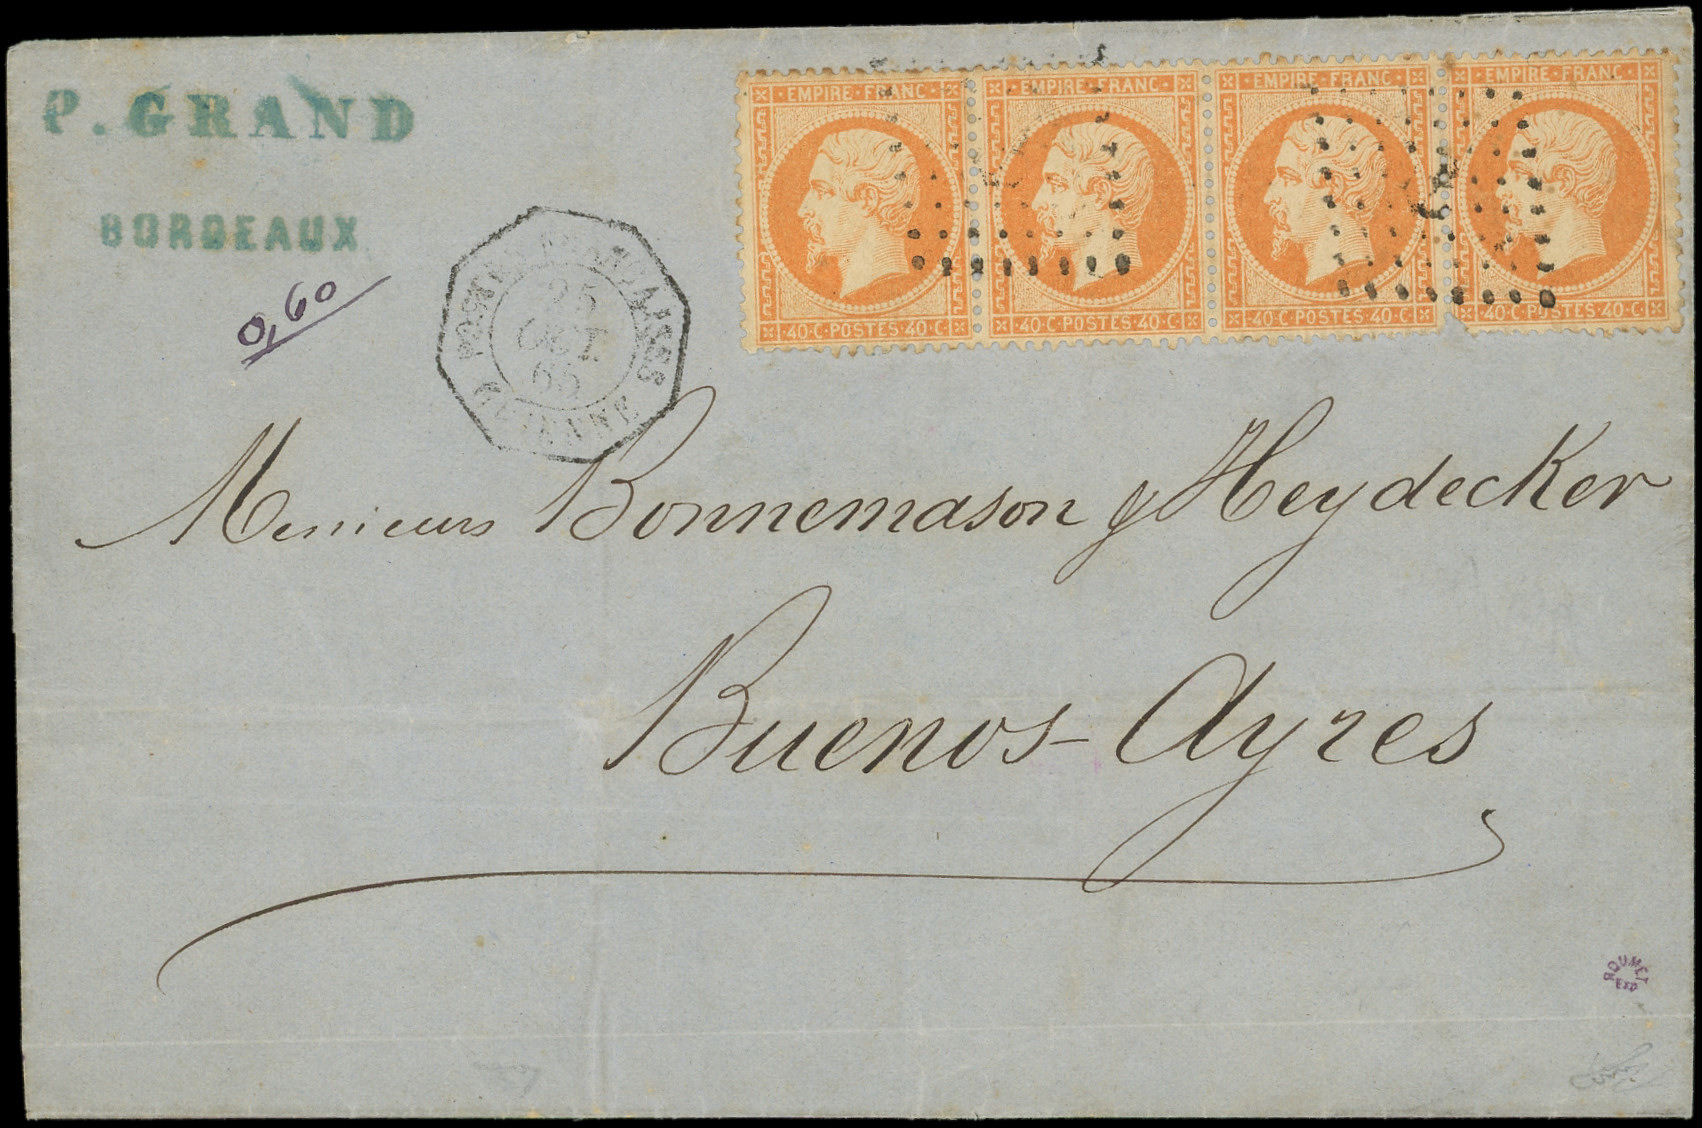 P. GRAND
BORDEAUX
0,60
25
OCT
65
GUIENNE
EMPIRE·FRANC EMPIRE·FRANC EMPIRE·FRANC EMPIRE·FRANC
40·C·POSTES·40·C 40·C·POSTES·40·C 40·C·POSTES·40·C 40·C·POSTES·40·C
Messieurs Bonnemason y Heydecker
Buenos-Ayres
ROUMET
EXP